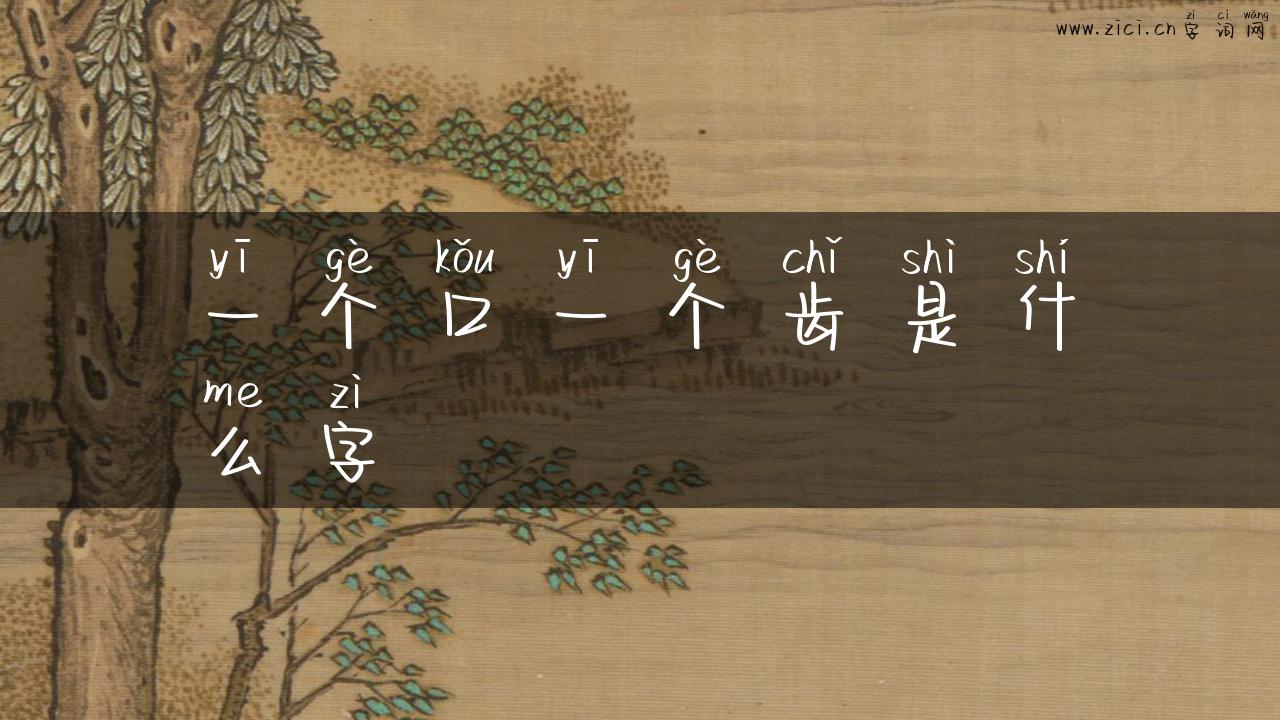 zì cí wǎng
www.zici.cn 字词网
yī gè kǒu yī gè chǐ shì shí
一个口一个齿是什
me zì
么字